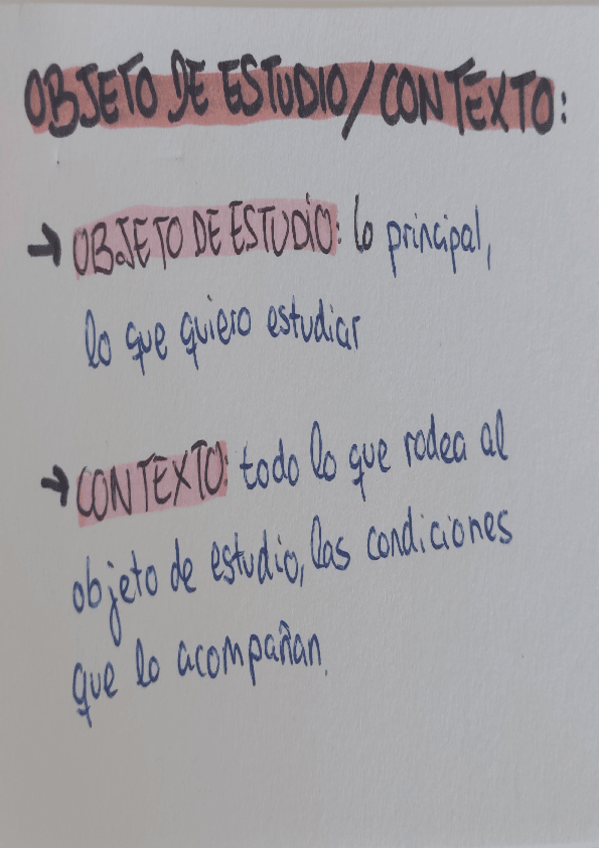 OBJETO DE ESTUDIO/CONTEXTO:
→ OBJETO DE ESTUDIO: lo principal,
lo que quiero estudiar
→ CONTEXTO: todo lo que rodea al
objeto de estudio, las condiciones
que lo acompañan.